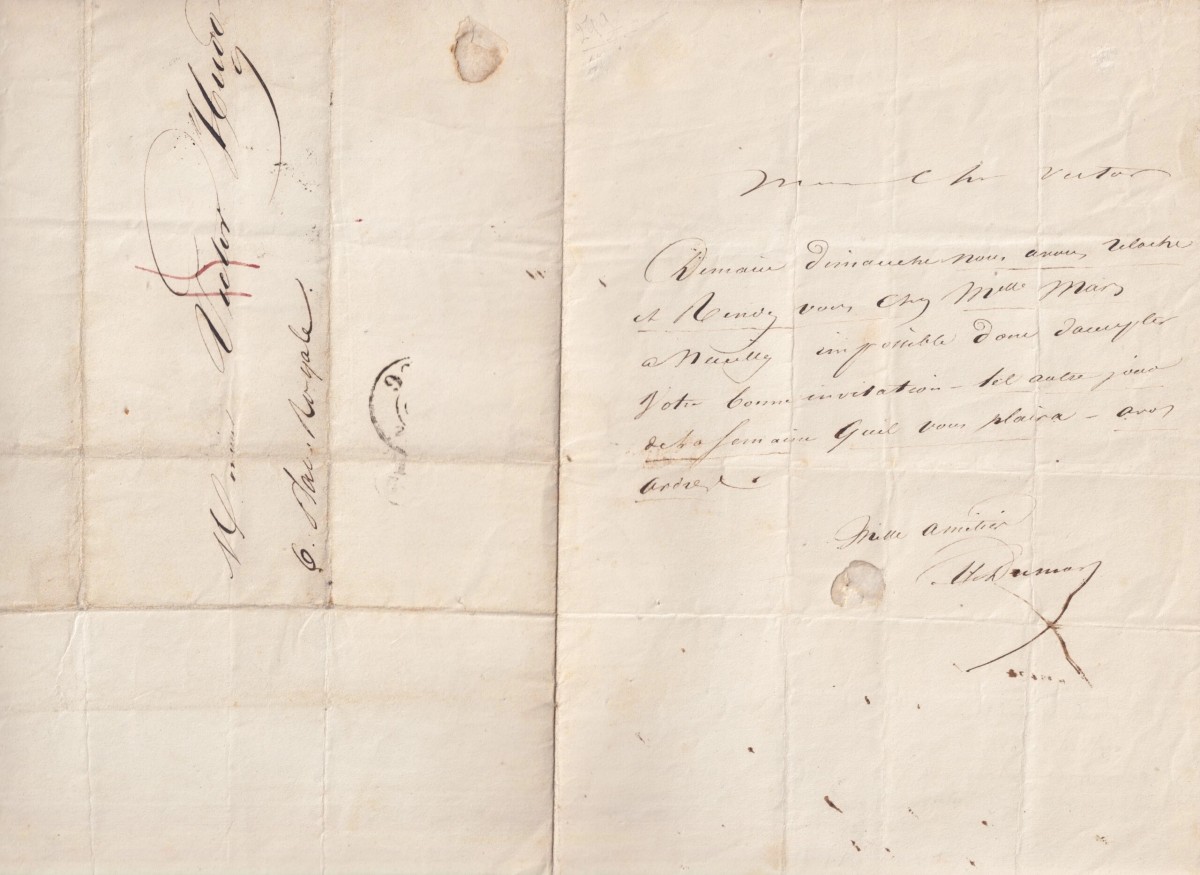 Monsieur Victor Hugo
6. Place Royale.
Mon Cher Victor
Demain dimanche nous avons relache
et Rendez vous chez Melle Mars
a Neuilly impossible donc daccepter
Votre bonne invitation – tel autre jour
de la semaine quil vous plaira – a vos
ordres.
Mille amitiés
Al Dumas